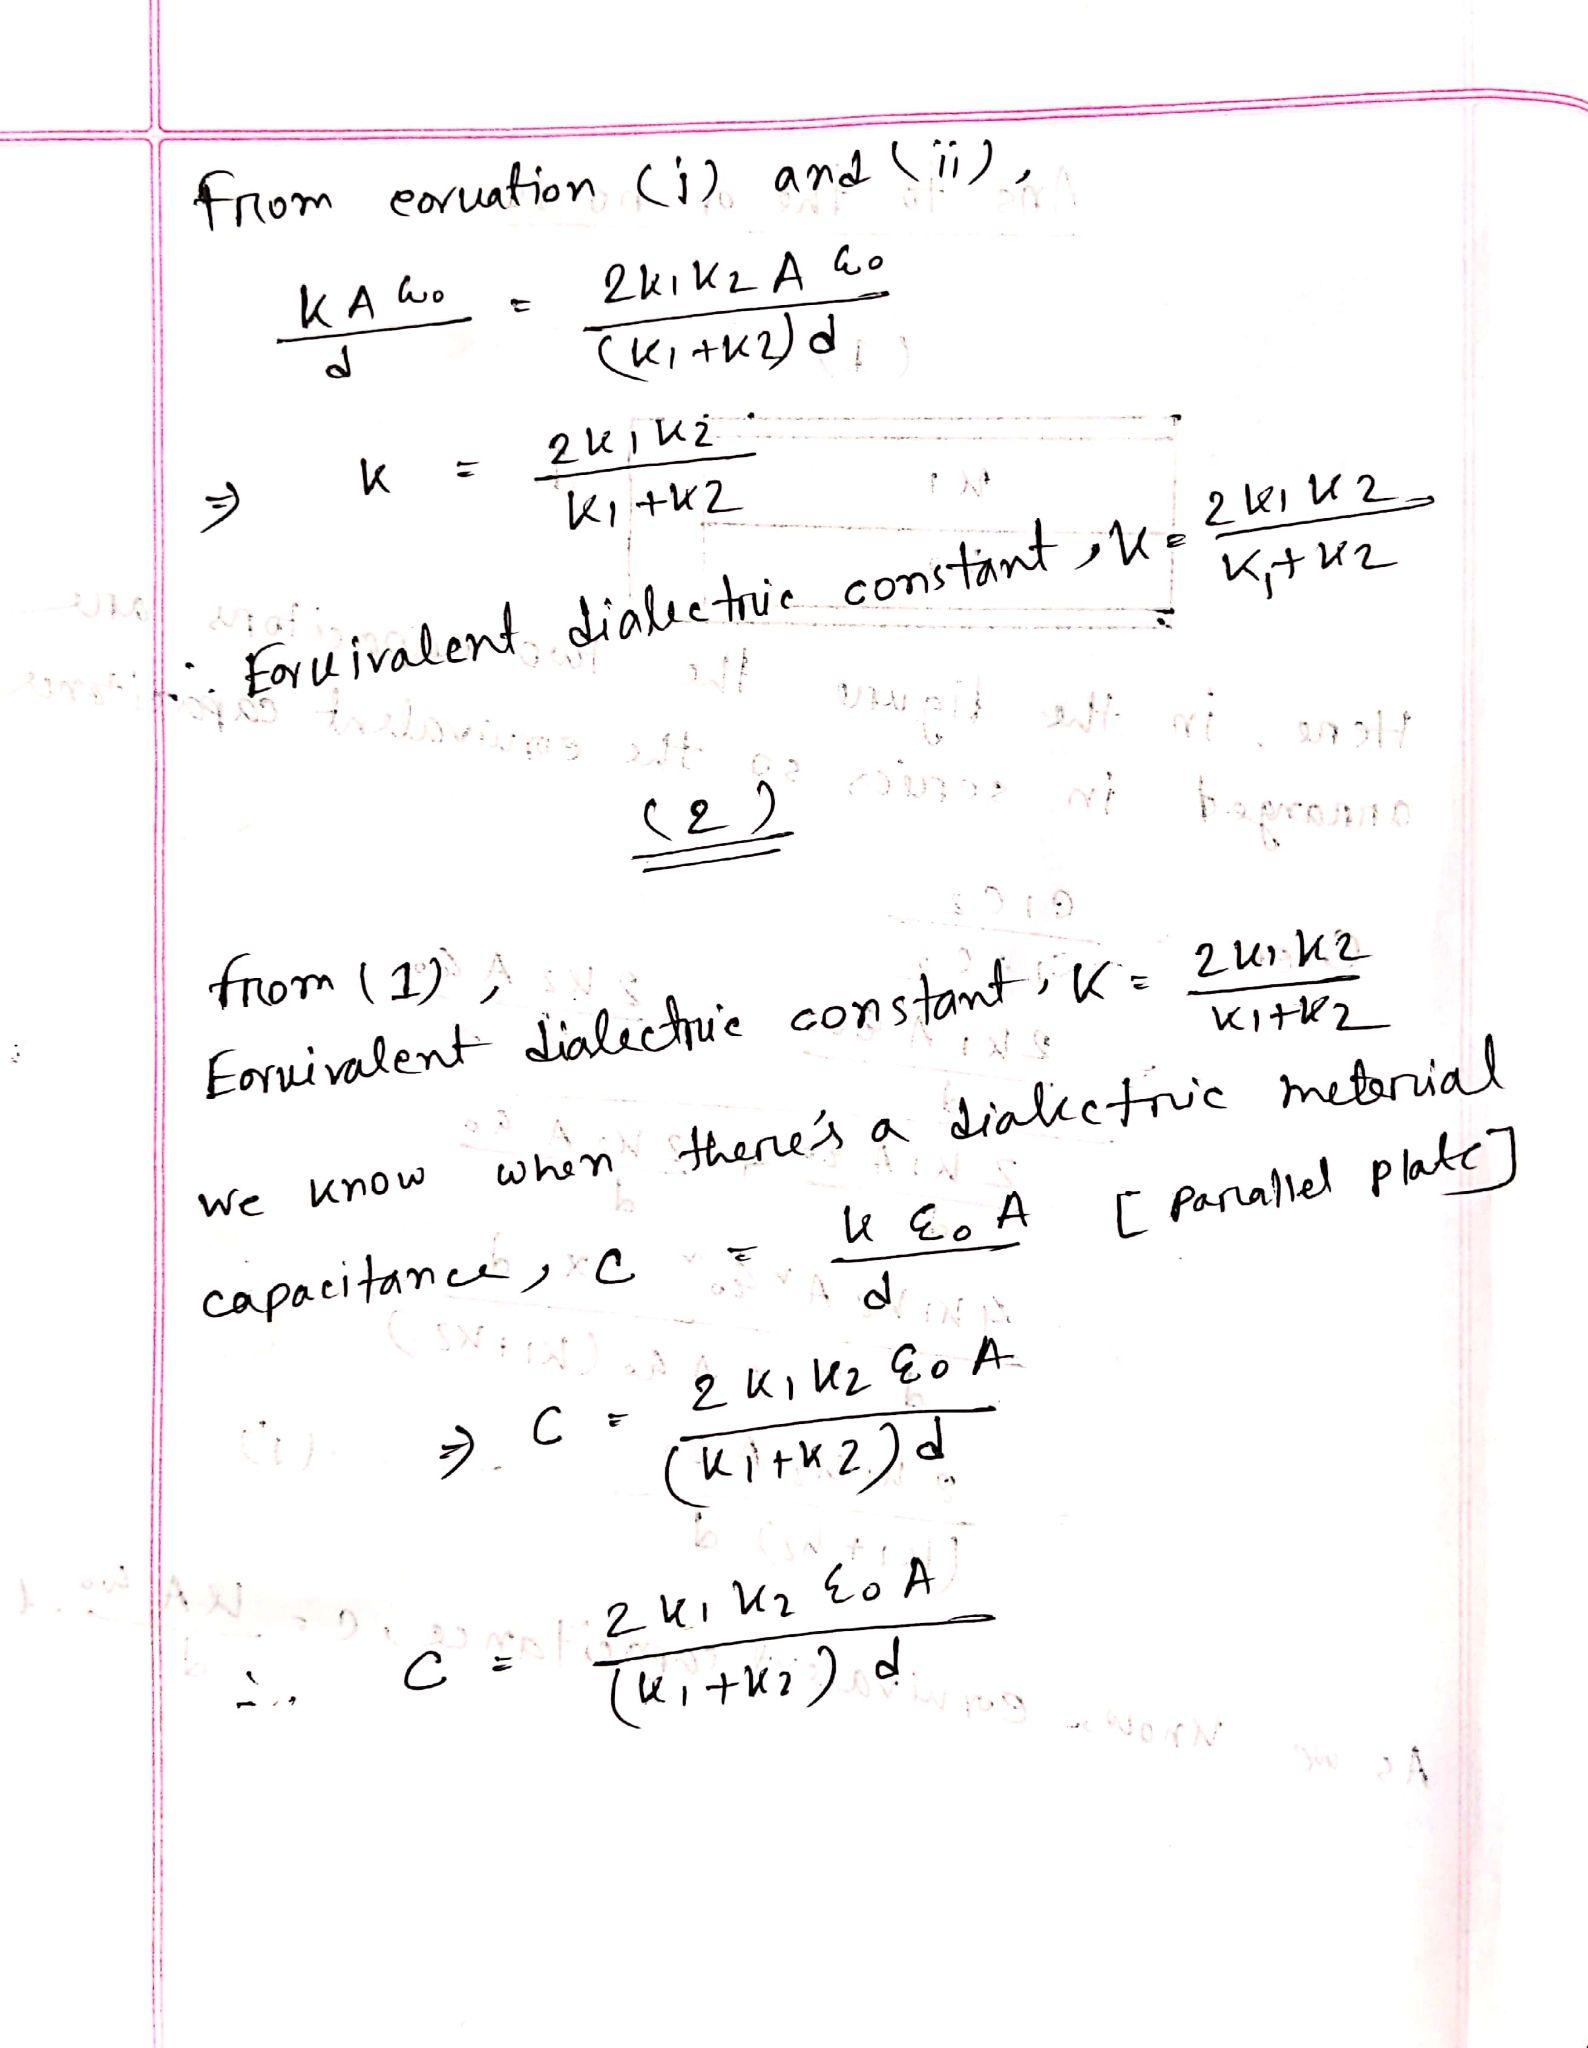 From equation (i) and (ii),
KAε0/d = 2K1K2Aε0/(K1+K2)d
⇒ K = 2K1K2/K1+K2
∴ Equivalent dialectric constant, K = 2K1K2/K1+K2
(2)
from (1),
Equivalent dialectric constant, K = 2K1K2/K1+K2
we know when there's a dialectric meterial
capacitance, C = Kε0A/d [parallel plate]
⇒ C = 2K1K2ε0A/(K1+K2)d
∴ C = 2K1K2ε0A/(K1+K2)d